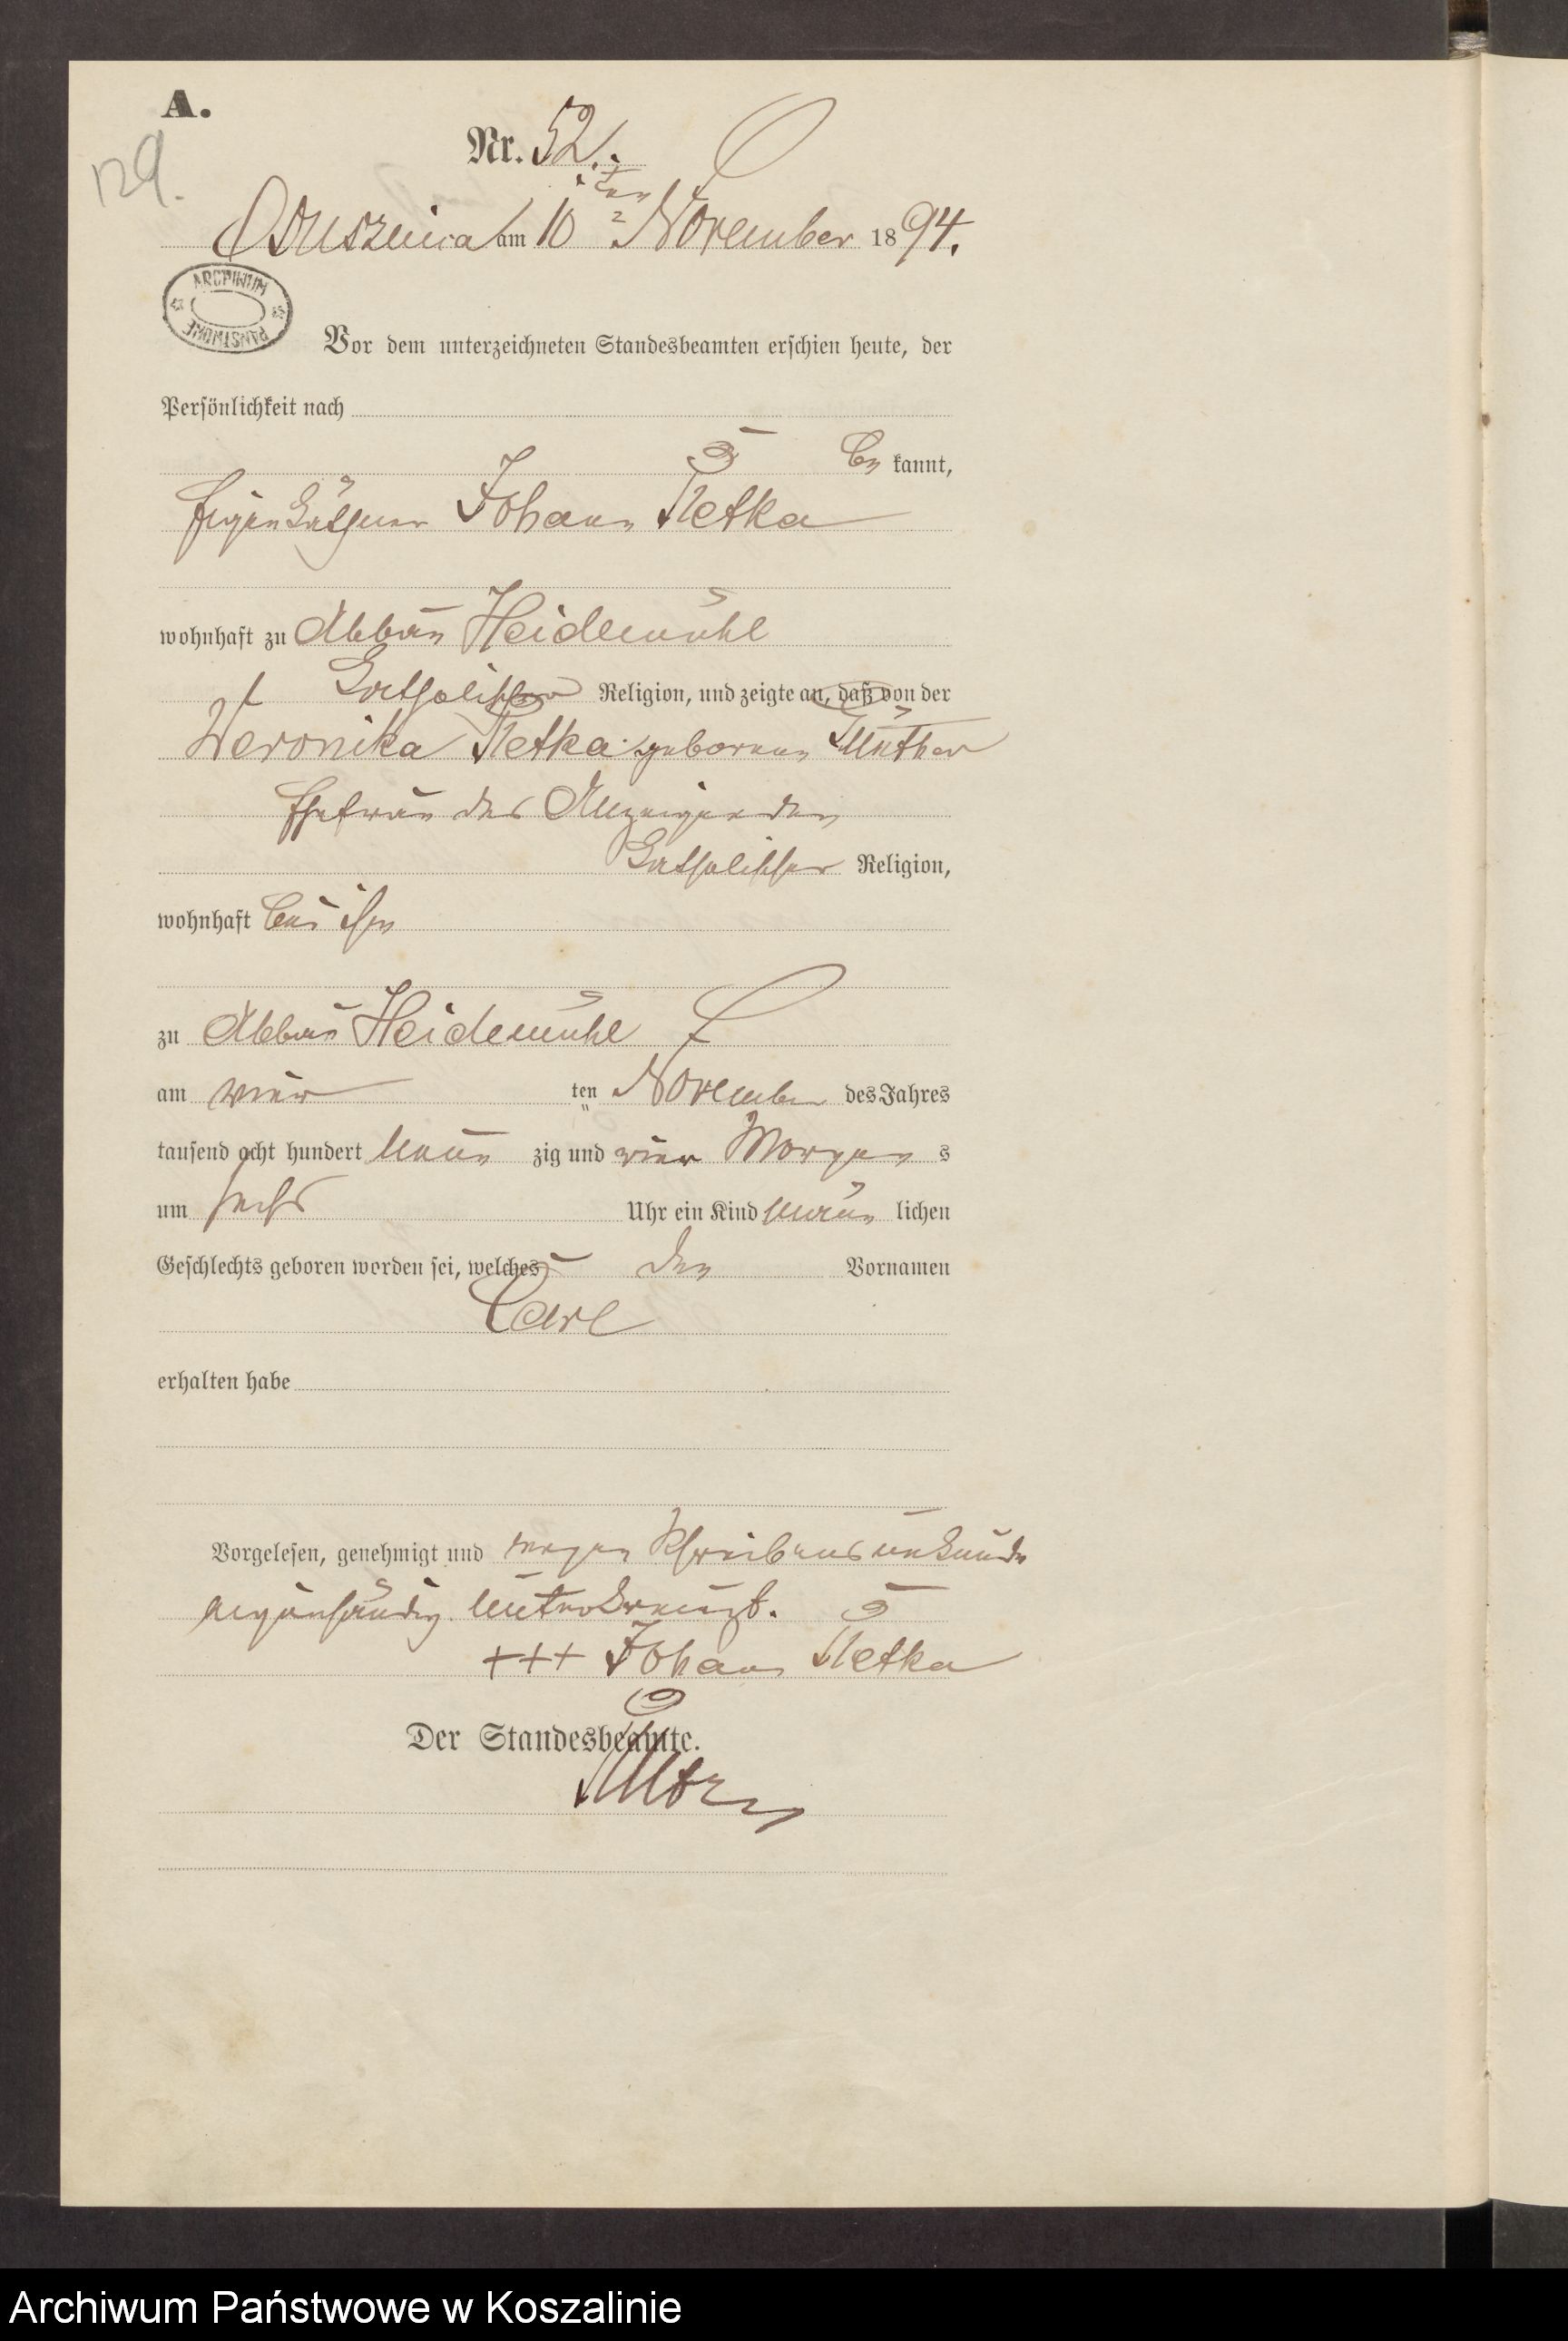 A.
129.
Nr. 52.
Ossusznica am 10ten November 1894.
ARCHIWUM PAŃSTWOWE
Vor dem unterzeichneten Standesbeamten erschien heute, der
Persönlichkeit nach
be kannt,
Eigenkäthner Johann Pletka
wohnhaft zu Abbau Heidemühl
katholischer Religion, und zeigte an, daß von der
Weronika Pletka geborenen
Ehefrau des Anzeigenden
katholischer Religion,
wohnhaft bei ihm
zu Abbau Heidemühl
am vier ten November des Jahres
tausend acht hundert neun zig und vier Morgens
um sechs Uhr ein Kind männlichen
Geschlechts geboren worden sei, welches den Vornamen
Carl
erhalten habe
Vorgelesen, genehmigt und wegen Schreibensunkunde
eigenhändig unterkreuzt.
+++ Johann Pletka
Der Standesbeamte.
Archiwum Państwowe w Koszalinie